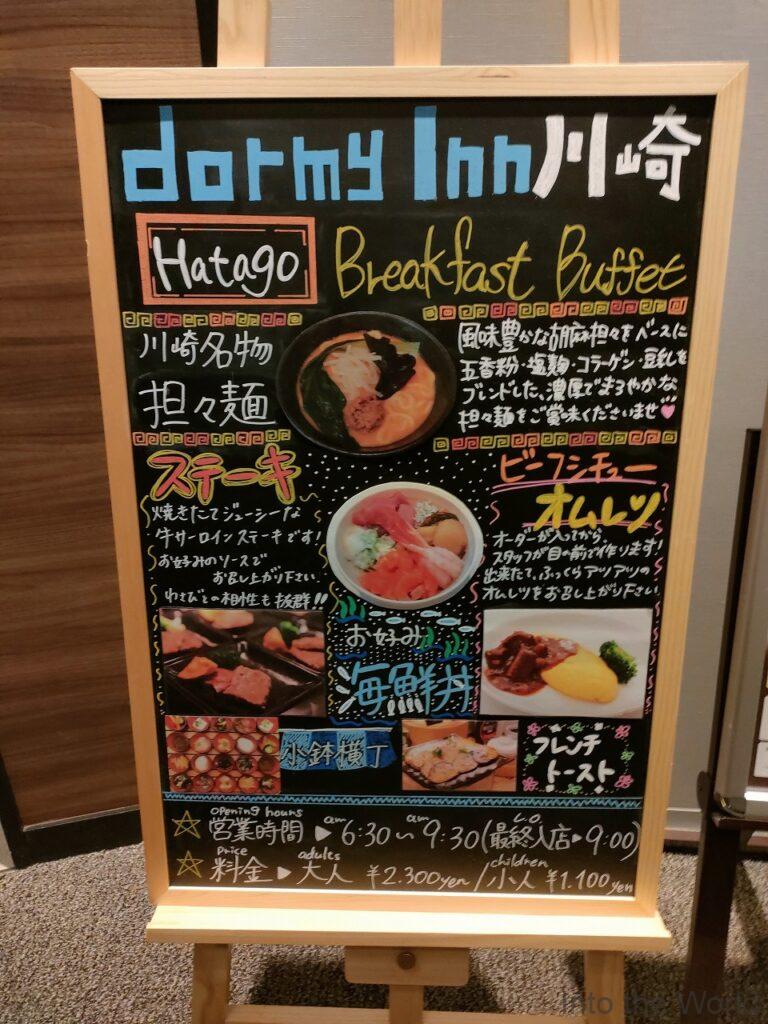 dormy Inn川崎
Hatago
Breakfast Buffet
川崎名物
担々麺
風味豊かな胡麻担々をベースに
五香粉・塩麹・コラーゲン・豆乳を
ブレンドした、濃厚でまろやかな
担々麺をご賞味くださいませ♥
ステーキ
焼きたてジューシーな
牛サーロインステーキです!
お好みのソースで
お召し上がり下さい
わさびとの相性も抜群!!
ビーフシチュー
オムレツ
オーダーが入ってから、
スタッフが目の前で作ります!
出来たて、ふっくらアツアツの
オムレツをお召し上がり下さい
お好み
海鮮丼
小鉢横丁
フレンチ
トースト
opening hours am am L.O.
☆営業時間▶6:30~9:30(最終入店▶9:00)
price adults children
☆料金▶大人 ¥2.300yen/小人 ¥1.100yen
Into the World